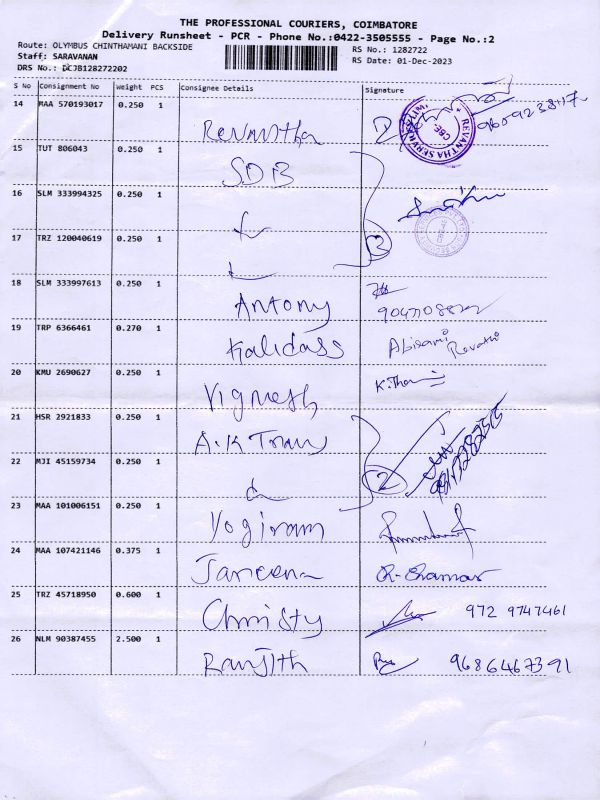 THE PROFESSIONAL COURIERS, COIMBATORE
Delivery Runsheet - PCR - Phone No.:0422-3505555 - Page No.:2
Route: OLYMBUS CHINTHAMANI BACKSIDE
RS No.: 1282722
Staff: SARAVANAN
RS Date: 01-Dec-2023
DRS No.: DCJB128272202
S No Consignment No Weight PCS Consignee Details Signature
14 MAA 570193017 0.250 1 Revantha
REVANTHA SERV CBE
15 TUT 806043 0.250 1 SDB
16 SLM 333994325 0.250 1
17 TRZ 120040619 0.250 1
18 SLM 333997613 0.250 1 Antony
19 TRP 6366461 0.270 1 Kalidass Abisami Revathi
20 KMU 2690627 0.250 1 Vignesh K.Thami
21 HSR 2921833 0.250 1 A.K Trans
22 MJI 45159734 0.250 1 2
23 MAA 101006151 0.250 1 Yogiram
24 MAA 107421146 0.375 1 Jareena
25 TRZ 45718950 0.600 1 Christy 972 9747461
26 NLM 90387455 2.500 1 Ranjith 9686467391